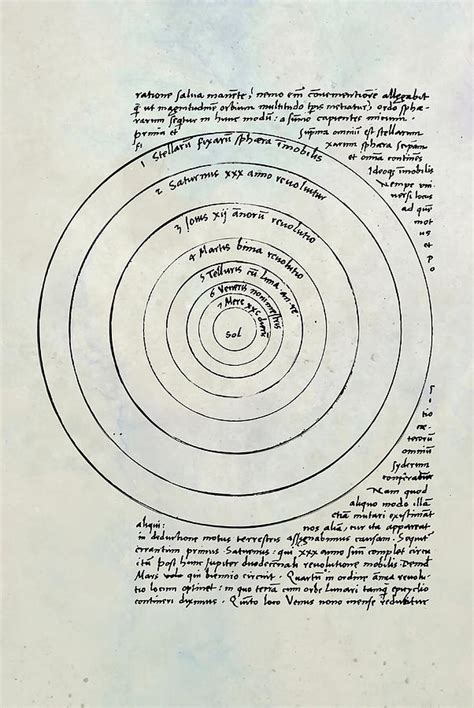 ratione salua manēte, nemo em̄ conuenientiorē allegabit
q̃ ut magnitudinē orbium multitudo tp̄is metiatur, ordo sphæ-
rarum seqtur in hunc modū: a sūmo capientes initium.
prima et suprema omniū est stellarum
fi xarum sphæra seipsam
et omnia continēs
Ideoq; īmobilis
Nempe uni
uersi locus
ad quē
mot
us et
1 Stellarū fixarū sphæra īmobilis
2 Saturnus xxx anno reuoluitur
3 Iouis xij annorū reuolutio
4 Martis bima reuolutio
5 Telluris cū Luna an. re.
6 Veneris nonimestris
7 Merc xxc dierū
Sol
tio
cæ-
terorū
omniū
syderum
conferatur
Nam quod
aliquo modo illā
etiā mutari existimāt
aliqui: nos aliā, cur ita appareat
in deductione motus terrestris assignabimus causam. Sequit̃
errantium primus Saturnus: qui xxx anno suū complet circu
itū post hunc Jupiter duodecennali reuolutione mobilis Deinde
Mars qui biennio circuit. Quartū in ordine annua reuolu
tio locum optinet: in quo terrā cum orbe Lunari tanq̃ epicyclio
contineri diximus. Quinto loco Venus nono mense reducitur